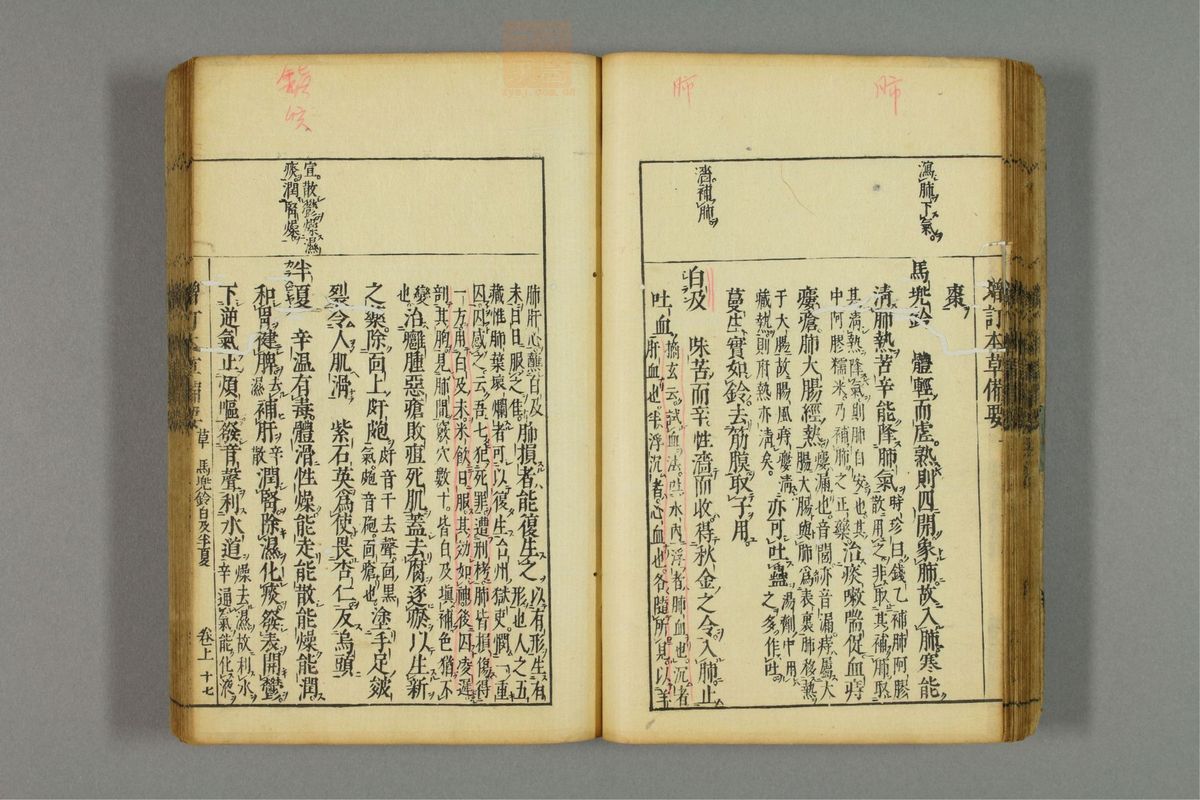 肺
肺
瀉肺下氣
濇補肺
增訂本草備要
棗
馬兜鈴　體輕而虛熟則四開象肺故入肺寒能
清肺熱苦辛能降肺氣時珍曰錢乙補肺阿膠散用之非取其補肺取
其清熱降氣則肺自安也其中阿膠糯米乃補肺之正藥治痰嗽喘促血痔
瘻瘡肺大腸經熱瘻漏也音閭亦音漏痔屬大腸大腸與肺爲表裏肺移熱
于大腸故腸風痔瘻清臟熱則府熱亦清矣亦可吐蠱湯劑中用之多作吐
蔓生實如鈴去筋膜取子用
白及　味苦而辛性濇而收得秋金之令入肺止
吐血摘玄云試血法吐水內浮者肺血也沉者肝血也半浮沉者心血也各隨所見以羊
肺肝心蘸白及末日日服之佳肺損者能復生之以有形生有形也人之五
臟惟肺葉壞爛者可以復生台州獄吏憫一重囚囚感之云吾七犯死罪遭刑栲肺皆損傷得
一方用白及末米飲日服其效如神後囚凌遲剖其胸見肺間竅穴數十皆白及填補色猶不
變也治癰腫惡瘡敗疽死肌蓋去腐逐瘀以生新
之藥除面上皯皰皯音干去聲面黑氣皰音砲面瘡也塗手足皴
裂令人肌滑　紫石英爲使畏杏仁反烏頭
半夏　辛溫有毒體滑性燥能走能散能燥能潤
和胃健脾去濕補肝辛散潤腎除濕化痰發表開鬱
下逆氣止煩嘔發音聲利水道燥去濕故利水辛通氣能化液
草　馬兜鈴白及半夏　卷上　十七
宜散鬱燥濕
痰潤腎燥